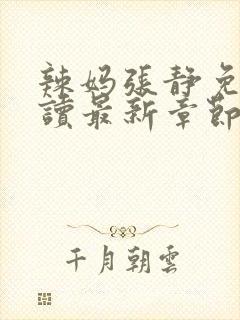 辣妈張静免
讀最新章節
千月朝雲